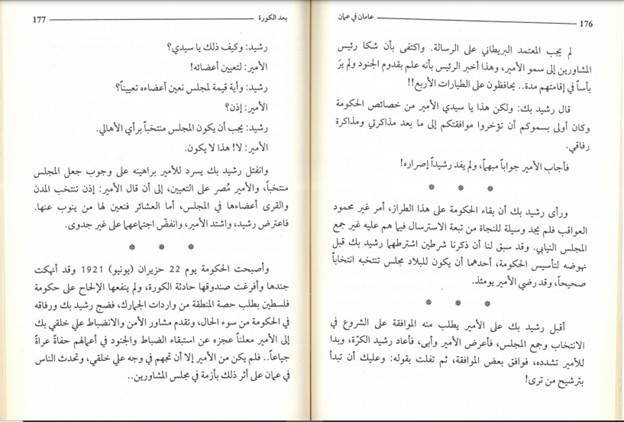 عامان في عمان
176
لم يجب المعتمد البريطاني على الرسالة. واكتفى بأن شكا رئيس
المشاورين إلى سمو الأمير، وهذا أخبر الرئيس بأنه علم بقدوم الجنود ولم يرَ
بأساً في إقامتهم مدة.. يحافظون على الطيارات الأربع!!
قال رشيد بك: ولكن هذا يا سيدي الأمير من خصائص الحكومة
وكان أولى بسموكم أن تؤخروا موافقتكم إلى ما بعد مذاكرتي ومذاكرة
رفاقي.
فأجاب الأمير جواباً مبهماً، ولم يفد رشيداً إصراره!
* * *
ورأى رشيد بك أن بقاء الحكومة على هذا الطراز، أمر غير محمود
العواقب فلم يجد وسيلة للنجاة من تبعة الاسترسال فيما هم عليه غير جمع
المجلس النيابي. وقد سبق لنا أن ذكرنا شرطين اشترطهما رشيد بك قبل
نهوضه لتأسيس الحكومة، أحدهما أن يكون للبلاد مجلس تنتخبه انتخاباً
صحيحاً، وقد رضي الأمير يومئذ.
* * *
أقبل رشيد بك على الأمير يطلب منه الموافقة على الشروع في
الانتخاب وجمع المجلس، فأعرض الأمير وأبى، فأعاد رشيد الكرّة، وبدا
للأمير تشدده، فوافق بعض الموافقة، ثم تفلت بقوله: وعليك أن تبدأ
بترشيح من ترى!
بعد الكورة
177
رشيد: وكيف ذلك يا سيدي؟
الأمير: لتعيين أعضائه!
رشيد: وأية قيمة لمجلس نعين أعضاءه تعييناً؟
الأمير: إذن؟
رشيد: يجب أن يكون المجلس منتخباً برأي الأهالي.
الأمير: لا! هذا لا يكون.
وانفتل رشيد بك يسرد للأمير براهينه على وجوب جعل المجلس
منتخباً، والأمير مُصر على التعيين، إلى أن قال الأمير: إذن تنتخب المدن
والقرى أعضاءها في المجلس، أما العشائر فنعين لها من ينوب عنها.
فاعترض رشيد، واشتد الأمير، وانفضّ اجتماعهما على غير جدوى.
* * *
وأصبحت الحكومة يوم 22 حزيران (يونيو) 1921 وقد أنهكت
جندها وأفرغت صندوقها حادثة الكورة، ولم ينفعها الإلحاح على حكومة
فلسطين بطلب حصة المنطقة من واردات الجمارك، فضج رشيد بك ورفاقه
في الحكومة من سوء الحال، وتقدم مشاور الأمن والانضباط علي خلقي بك
إلى الأمير معلناً عجزه عن استبقاء الضباط والجنود في أعمالهم حفاةً عراةً
جياعاً.. فلم يكن من الأمير إلا أن تجهم في وجه علي خلقي، وتحدث الناس
في عمان على أثر ذلك بأزمة في مجلس المشاورين..